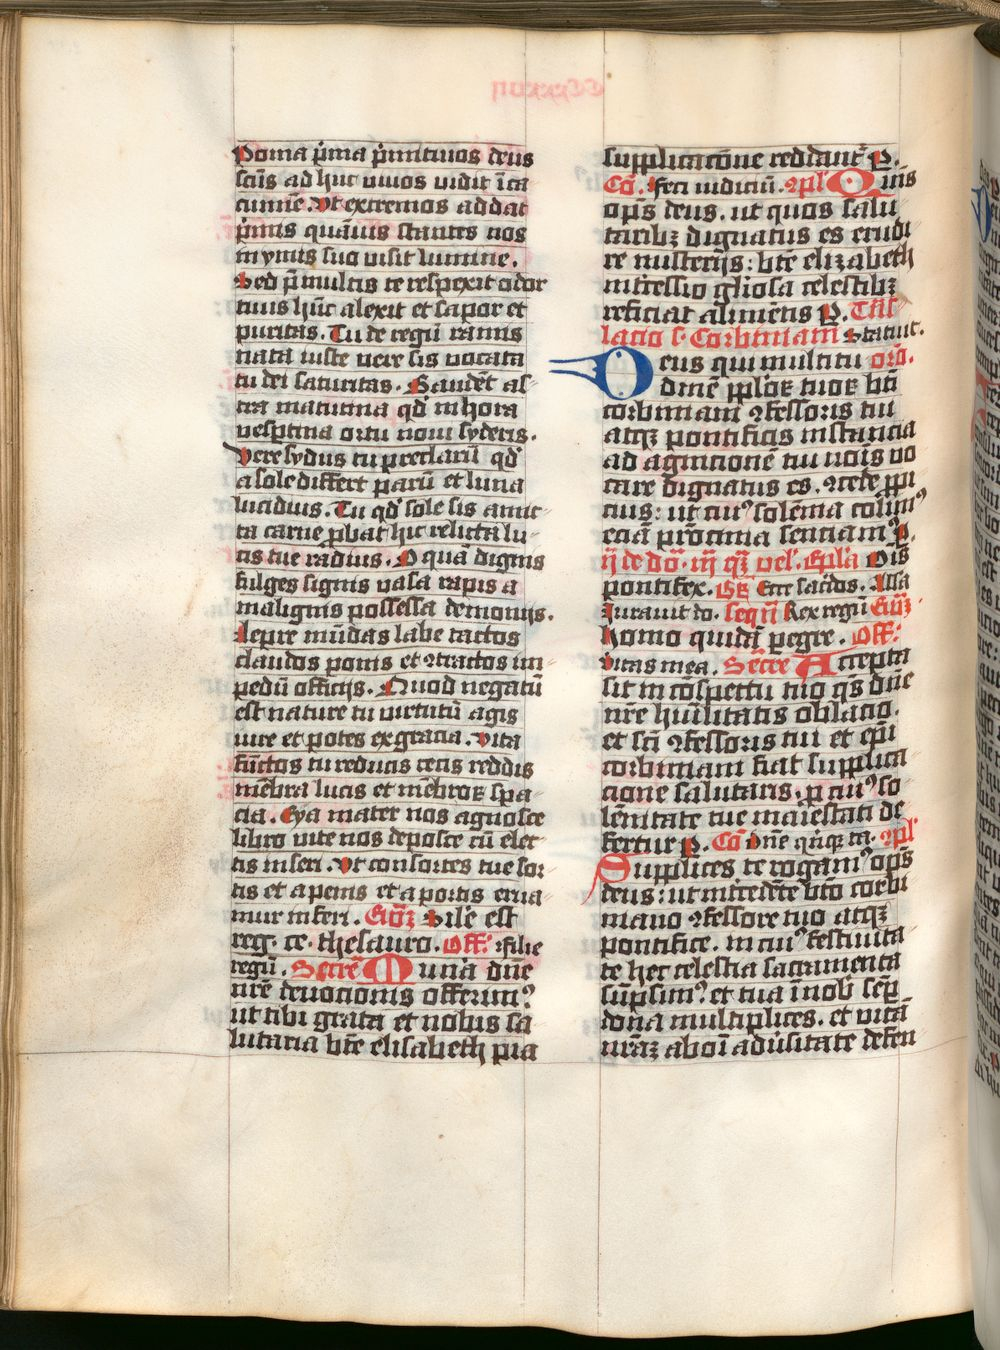 Poma p̄ma p̄mitiuos deus
sc̄us ad huc uiuos vidit ī ca
cumīe. Vt extremos addat
p̄mis quāuis stantes nos
in ymis suo visit lumine.
Sed p̄ multis te respexit odor
tuus hūc alexit et sapor et
puritas. Tu de regū ramis
nata iuste vere sis vocata
tu dei saturitas. Gaudēt as-
tra matutina qd̄ in hora
vesptina ortu noui syderis.
Vere sydus tu preclarū qd̄
a sole differt parū et luna
lucidius. Tu qd̄ sole sis amic
ta carne pbat hic relicta lu-
cis tue radius. O quā dignis
fulges signis vasa rapis a
malignis possessa demonijs.
Lepre mūdas labe tactos
claudos ponis et ꝯtractos im
pedū officijs. Quod negatū
est nature tu virtutū agis
iure et potes ex gracia. Vita
fūctos tu reducis cecis reddis
mēbra lucis et mēbroꝝ spa
cia. Eya mater nos agnosce
libro vite nos deposce cū elec
tis inseri. Vt consortes tue sor
tis et a penis et a portis erua
mur inferi. Eūḡ Sil'e est
reg. ce. thesauro. Off. Filie
regū. Secrē Munā dn̄e
nr̄e deuotionis offerimꝰ
ut tibi grata et nobis sa
lutaria bt̄e elisabeth pia
supplicacōne reddant᷑ P.
Cō. Feci iudiciū. ꝯpl' Om̄s
opn̄s deus. ut quos salu
taribꝫ dignatus es erudi
re misterijs: bt̄e elizabeth
intcessio gl'iosa celestibꝫ
reficiat alimētis P. Tn̄s
lacio s. Corbiniani Statuit.
Deus qui multitu orō.
dinē pploꝝ tuoꝝ bt̄i
corbiniani ꝯfessoris tui
atqꝫ pontificis instancia
ad agnicionē tui noīs vo
care dignatus es. ꝯcede ppi
cius: ut cuiꝰ solēnia colimꝰ
eciā prōtinia senciamꝰ P.
ij de dō. iij qꝫ vel. Epl'a Oīs
pontifex. Gr̄ Ecce sac̄dos. All'a
Iurauit do. seqū Rex regū Eūḡ
homo quidā pegre. Off.
Vitas mea. Secrē Accepta
sit in cōspectu tuo qs̄ dn̄e
nr̄e hūilitatis oblacio.
et sc̄i ꝯfessoris tui et ep̄i
corbiniani fiat supplica
cione salutaris. p cuiꝰ so
lēnitate tue maiestati de
fertur P. Cō Dn̄e qīqꝫ ta. ꝯpl'
Supplices te rogamꝰ opn̄s
deus: ut intcedēte bt̄o corbi
niano ꝯfessore tuo atqꝫ
pontifice. in cuiꝰ festiuita
te hec celestia sacramenta
sūpsimꝰ. et tua ī nob̄ semp
dona multiplices. et vitā
nrāꝫ ab oī aduersitate defen